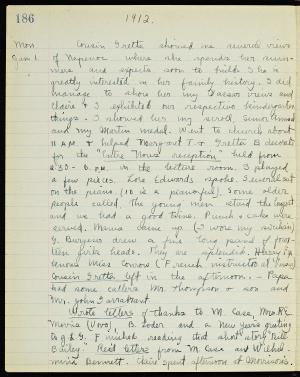 186
1912.
Mon. Cousin Gretta showed me several views
Jan 1. of Nepenoc where she spends her sum-
mers and expects soon to build. I he is
greatly interested in her family history. I did
manage to show her my Vassar views and
Claire & I exhibited our respective kindergarten
things. I showed her my scroll, Senior Annual
and my Merlin medal. Went to church about
11 A.M. & helped Margaret T. & Gretta B decorate
for the "Entre Nous reception" held from
2:30 - 6 P.M. in the lecture room. I played
a few pieces. Lora Edwards spoke & several sat
on the piano. (10 is a piano-ful). Some older
people called. The young men stood the longest
and we had a good time. Punch & cake were
served. Mama came up (I wore my
G. Burgess drew a fine long panel of
girls heads. They are splendid.
Miss Cowow (French instructor at Vassar)
Cousin Gretta left in the afternoon. - Papa
had some callers Mr. Thompson & son and
Mr. John Farrakant
Wrote letters of thanks to M. Case, Mrs. R.C.
"Marsa (Uvo), B. Loder and a New Years greeting
to g. & G. Finished reading that short story "Nell
Bailey." Rec'd letters from M. Case and Wilhel-
mina Bennett. Clair spent afternoon at Morrison's.